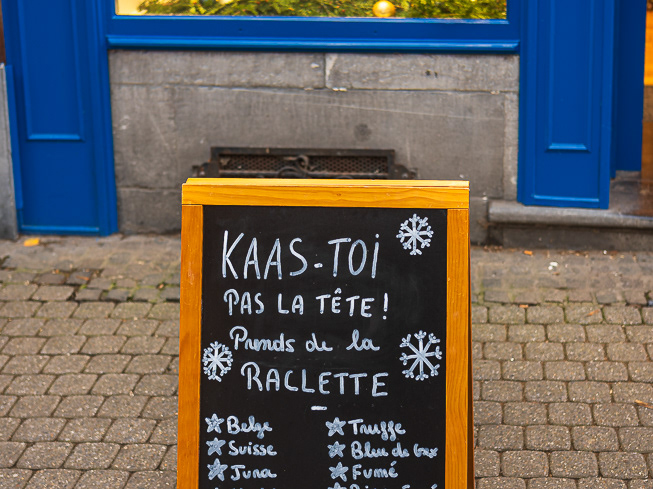 KAAS-TOi
PAS LA TÊTE!
Prends de la
RACLETTE
Belge
Truffe
Suisse
Bleu de bex
Jura
Fumé